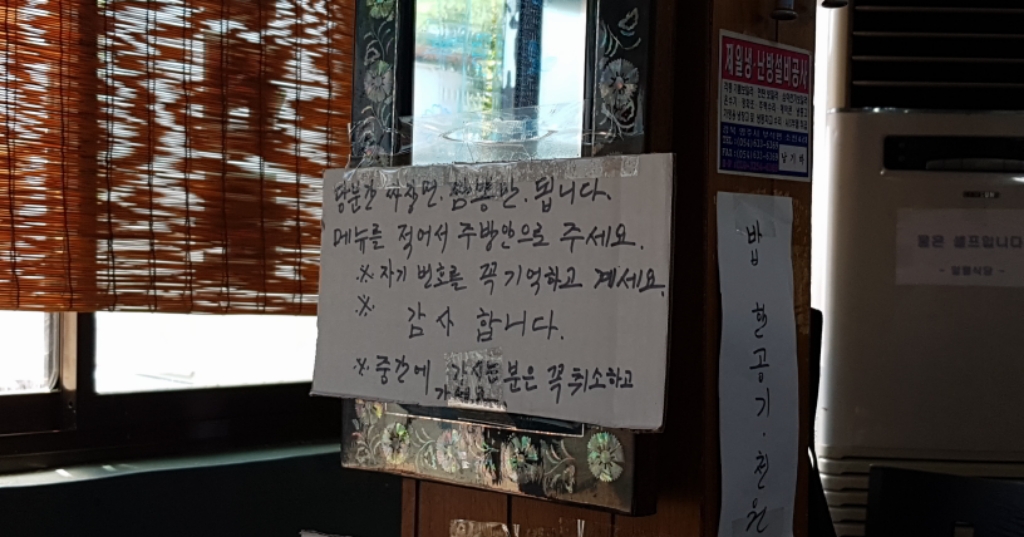 당분간 짜장면. 짬뽕만. 됩니다.
메뉴를 적어서 주방안으로 주세요.
※ 자기 번호를 꼭 기억하고 계세요.
※ 감사 합니다.
※ 중간에 가시는분은 꼭 취소하고
가세요.
제일냉·난방설비공사
밥 한공기. 천원
물은 셀프입니다